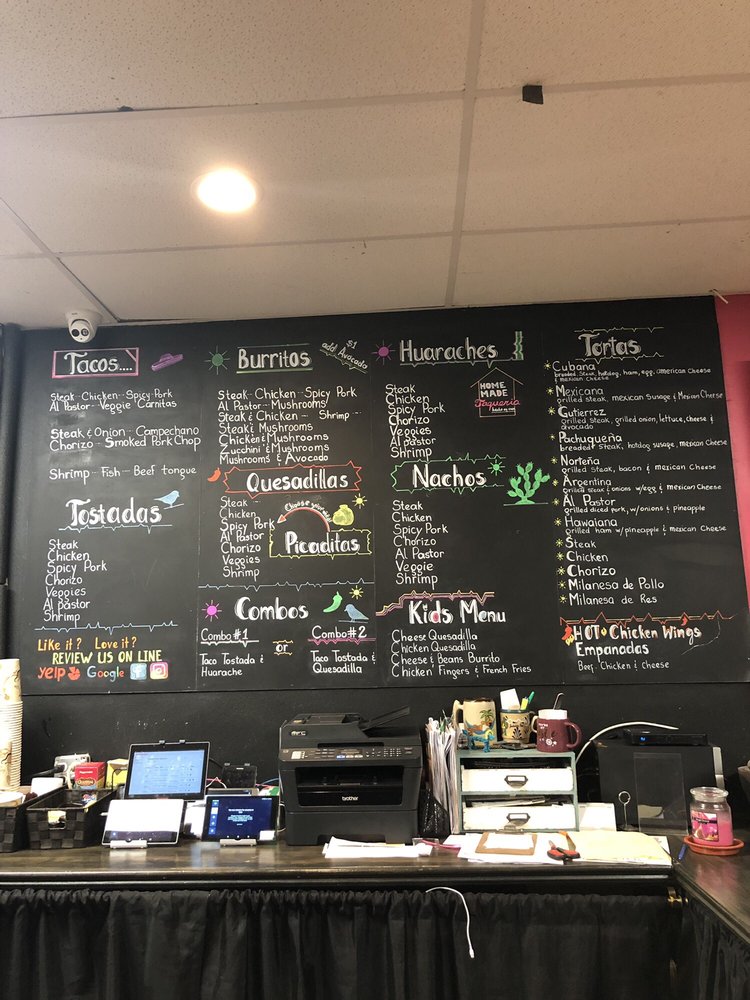 Tacos....
Steak - Chicken - Spicy Pork
Al Pastor - Veggie Carnitas
Steak & Onion - Campechano
Chorizo - Smoked Pork Chop
Shrimp - Fish - Beef tongue
Tostadas
Steak
Chicken
Spicy Pork
Chorizo
Veggies
Al pastor
Shrimp
Like it? Love it?
REVIEW US ON LINE
yelp Google
Burritos
$1
add Avocado
Steak - Chicken - Spicy Pork
Al Pastor - Mushrooms
Steak & Chicken - Shrimp -
Steak & Mushrooms
Chicken & Mushrooms
Zucchini & Mushrooms
Mushrooms & Avocado
Quesadillas
Steak
Chicken
Spicy Pork
Al Pastor
Chorizo
Veggies
Shrimp
Choose your
Picaditas
Combos
Combo #1
Taco Tostada &
Huarache
or
Combo #2
Taco Tostada &
Quesadilla
Huaraches
Steak
Chicken
Spicy Pork
Chorizo
Veggies
Al pastor
Shrimp
HOME
MADE
Taqueria
Nachos
Steak
Chicken
Spicy Pork
Chorizo
Al Pastor
Veggie
Shrimp
Kids Menu
Cheese Quesadilla
Chicken Quesadilla
Cheese & Beans Burrito
Chicken Fingers & French Fries
Tortas
Cubana
breaded steak, hotdog, ham, egg, american cheese
& mexican cheese
Mexicana
grilled steak, mexican susage & Mexian Cherse
Gutierrez
grilled steak, grilled onion, lettuce, cheese &
avocado
Pachuqueña
breaded steak, hotdog susage, mexican Cheese
Norteña
grilled steak, bacon & mexican Cheese
Argentina
grilled steak & onions w/egg & mexican Cheese
Al Pastor
grilled diced pork, w/onions & pineapple
Hawaiana
grilled ham w/pineapple & mexican Cheese
Steak
Chicken
Chorizo
Milanesa de Pollo
Milanesa de Res
HOT Chicken Wings
Empanadas
Beef, Chicken & Cheese
brother